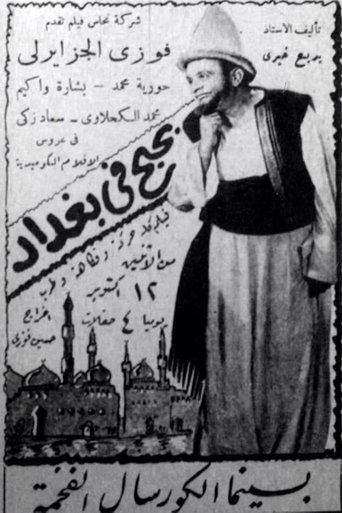 تأليف الأستاذ
بديع خيرى
شركة نحاس فيلم تقدم
فوزى الجزايرلى
حورية محمد - بشارة واكيم
محمد الكحلاوى - سعاد زكى
فى عروس
الأفلام الكوميدية
بحبح فى بغداد
فيلم كله مرح وفكاهة وطرب
من الاثنين
١٢ اكتوبر
يوميا ٤ حفلات
اخراج
حسين فوزى
بسينما الكورسال الفخمة